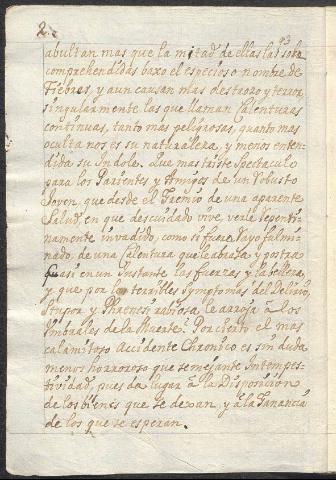 2
abultan mas que la mitad de ellas las solas
comprehendidas baxo el especioso nombre de
Fiebres, y aun causan mas destrozo y terror
singularmente las que llaman Calenturas
continuas, tanto mas peligrosas, quanto mas
oculta nos es su naturaleza, y menos enten-
dida su Indole. Que mas triste Spectaculo
para los Parientes, y Amigos de un robusto
Joven, que desde el Gremio de una aparente
Salud, en que descuidado vive, verle repenti-
namente invadido, como si fuere Rayo fulmi-
nado, de una Calentura que le abrasa y postra
quasi en un instante las fuerzas y la belleza,
y que por los terribles Symptomas del Delirio,
Stupor y Phrenesi rabiosa, le arroja à los
Umbrales de la Muerte? Por cierto el mas
calamitoso Accidente Chronico es sin duda
menos horroroso que semejante Intempes-
tividad, pues da lugar à la Disposicion
de los bienes que se dexan, y à la Ganancia
de los que se esperan.